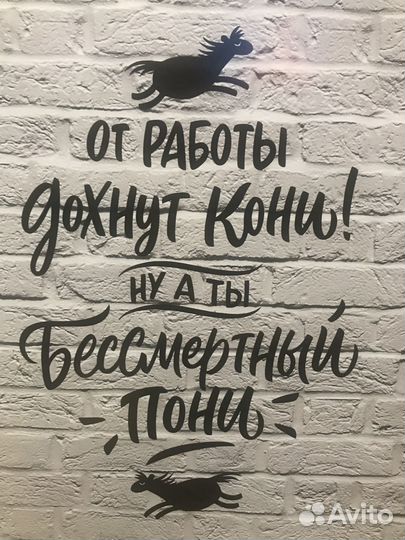 ОТ РАБОТЫ
ДОХНУТ КОНИ!
НУ А ТЫ
Бессмертный
ПОНИ
Avito